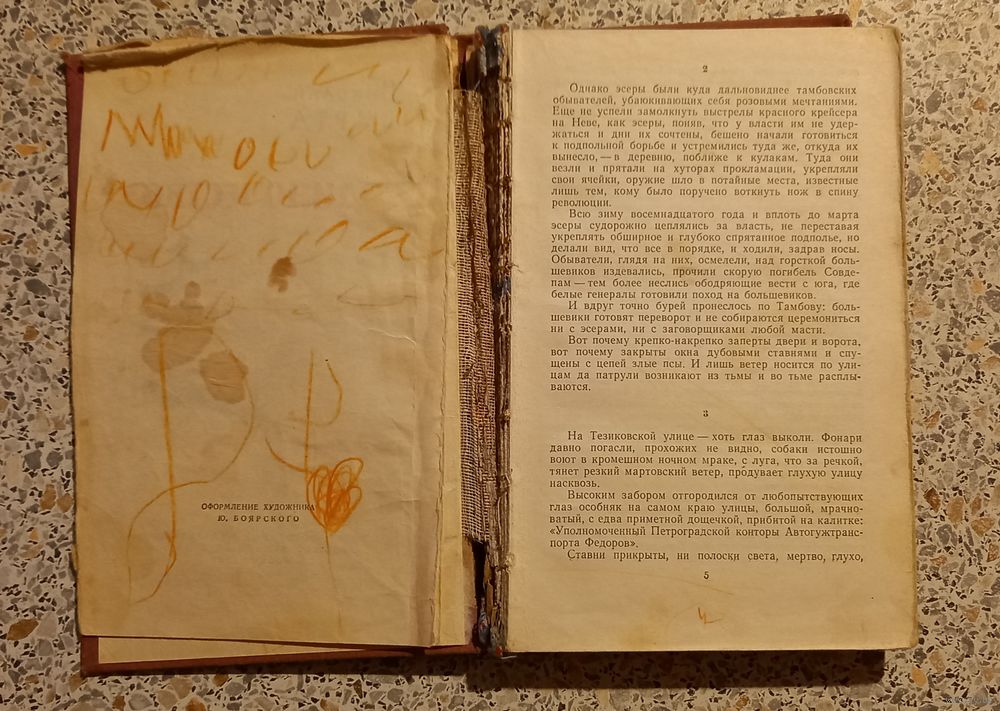 ОФОРМЛЕНИЕ ХУДОЖНИКА
Ю. БОЯРСКОГО
2
Однако эсеры были куда дальновиднее тамбовских
обывателей, убаюкивающих себя розовыми мечтаниями.
Еще не успели замолкнуть выстрелы красного крейсера
на Неве, как эсеры, поняв, что у власти им не удер-
жаться и дни их сочтены, бешено начали готовиться
к подпольной борьбе и устремились туда же, откуда их
вынесло, — в деревню, поближе к кулакам. Туда они
везли и прятали на хуторах прокламации, укрепляли
свои ячейки, оружие шло в потайные места, известные
лишь тем, кому было поручено воткнуть нож в спину
революции.
Всю зиму восемнадцатого года и вплоть до марта
эсеры судорожно цеплялись за власть, не переставая
укреплять обширное и глубоко спрятанное подполье, но
делали вид, что все в порядке, и ходили, задрав носы.
Обыватели, глядя на них, осмелели, над горсткой боль-
шевиков издевались, прочили скорую погибель Совде-
пам — тем более неслись ободряющие вести с юга, где
белые генералы готовили поход на большевиков.
И вдруг точно бурей пронеслось по Тамбову: боль-
шевики готовят переворот и не собираются церемониться
ни с эсерами, ни с заговорщиками любой масти.
Вот почему крепко-накрепко заперты двери и ворота,
вот почему закрыты окна дубовыми ставнями и спу-
щены с цепей злые псы. И лишь ветер носится по ули-
цам да патрули возникают из тьмы и во тьме расплы-
ваются.
3
На Тезиковской улице — хоть глаз выколи. Фонари
давно погасли, прохожих не видно, собаки истошно
воют в кромешном ночном мраке, с луга, что за речкой,
тянет резкий мартовский ветер, продувает глухую улицу
насквозь.
Высоким забором отгородился от любопытствующих
глаз особняк на самом краю улицы, большой, мрачно-
ватый, с едва приметной дощечкой, прибитой на калитке:
«Уполномоченный Петроградской конторы Автогужтранс-
порта Федоров».
Ставни прикрыты, ни полоски света, мертво, глухо,
5